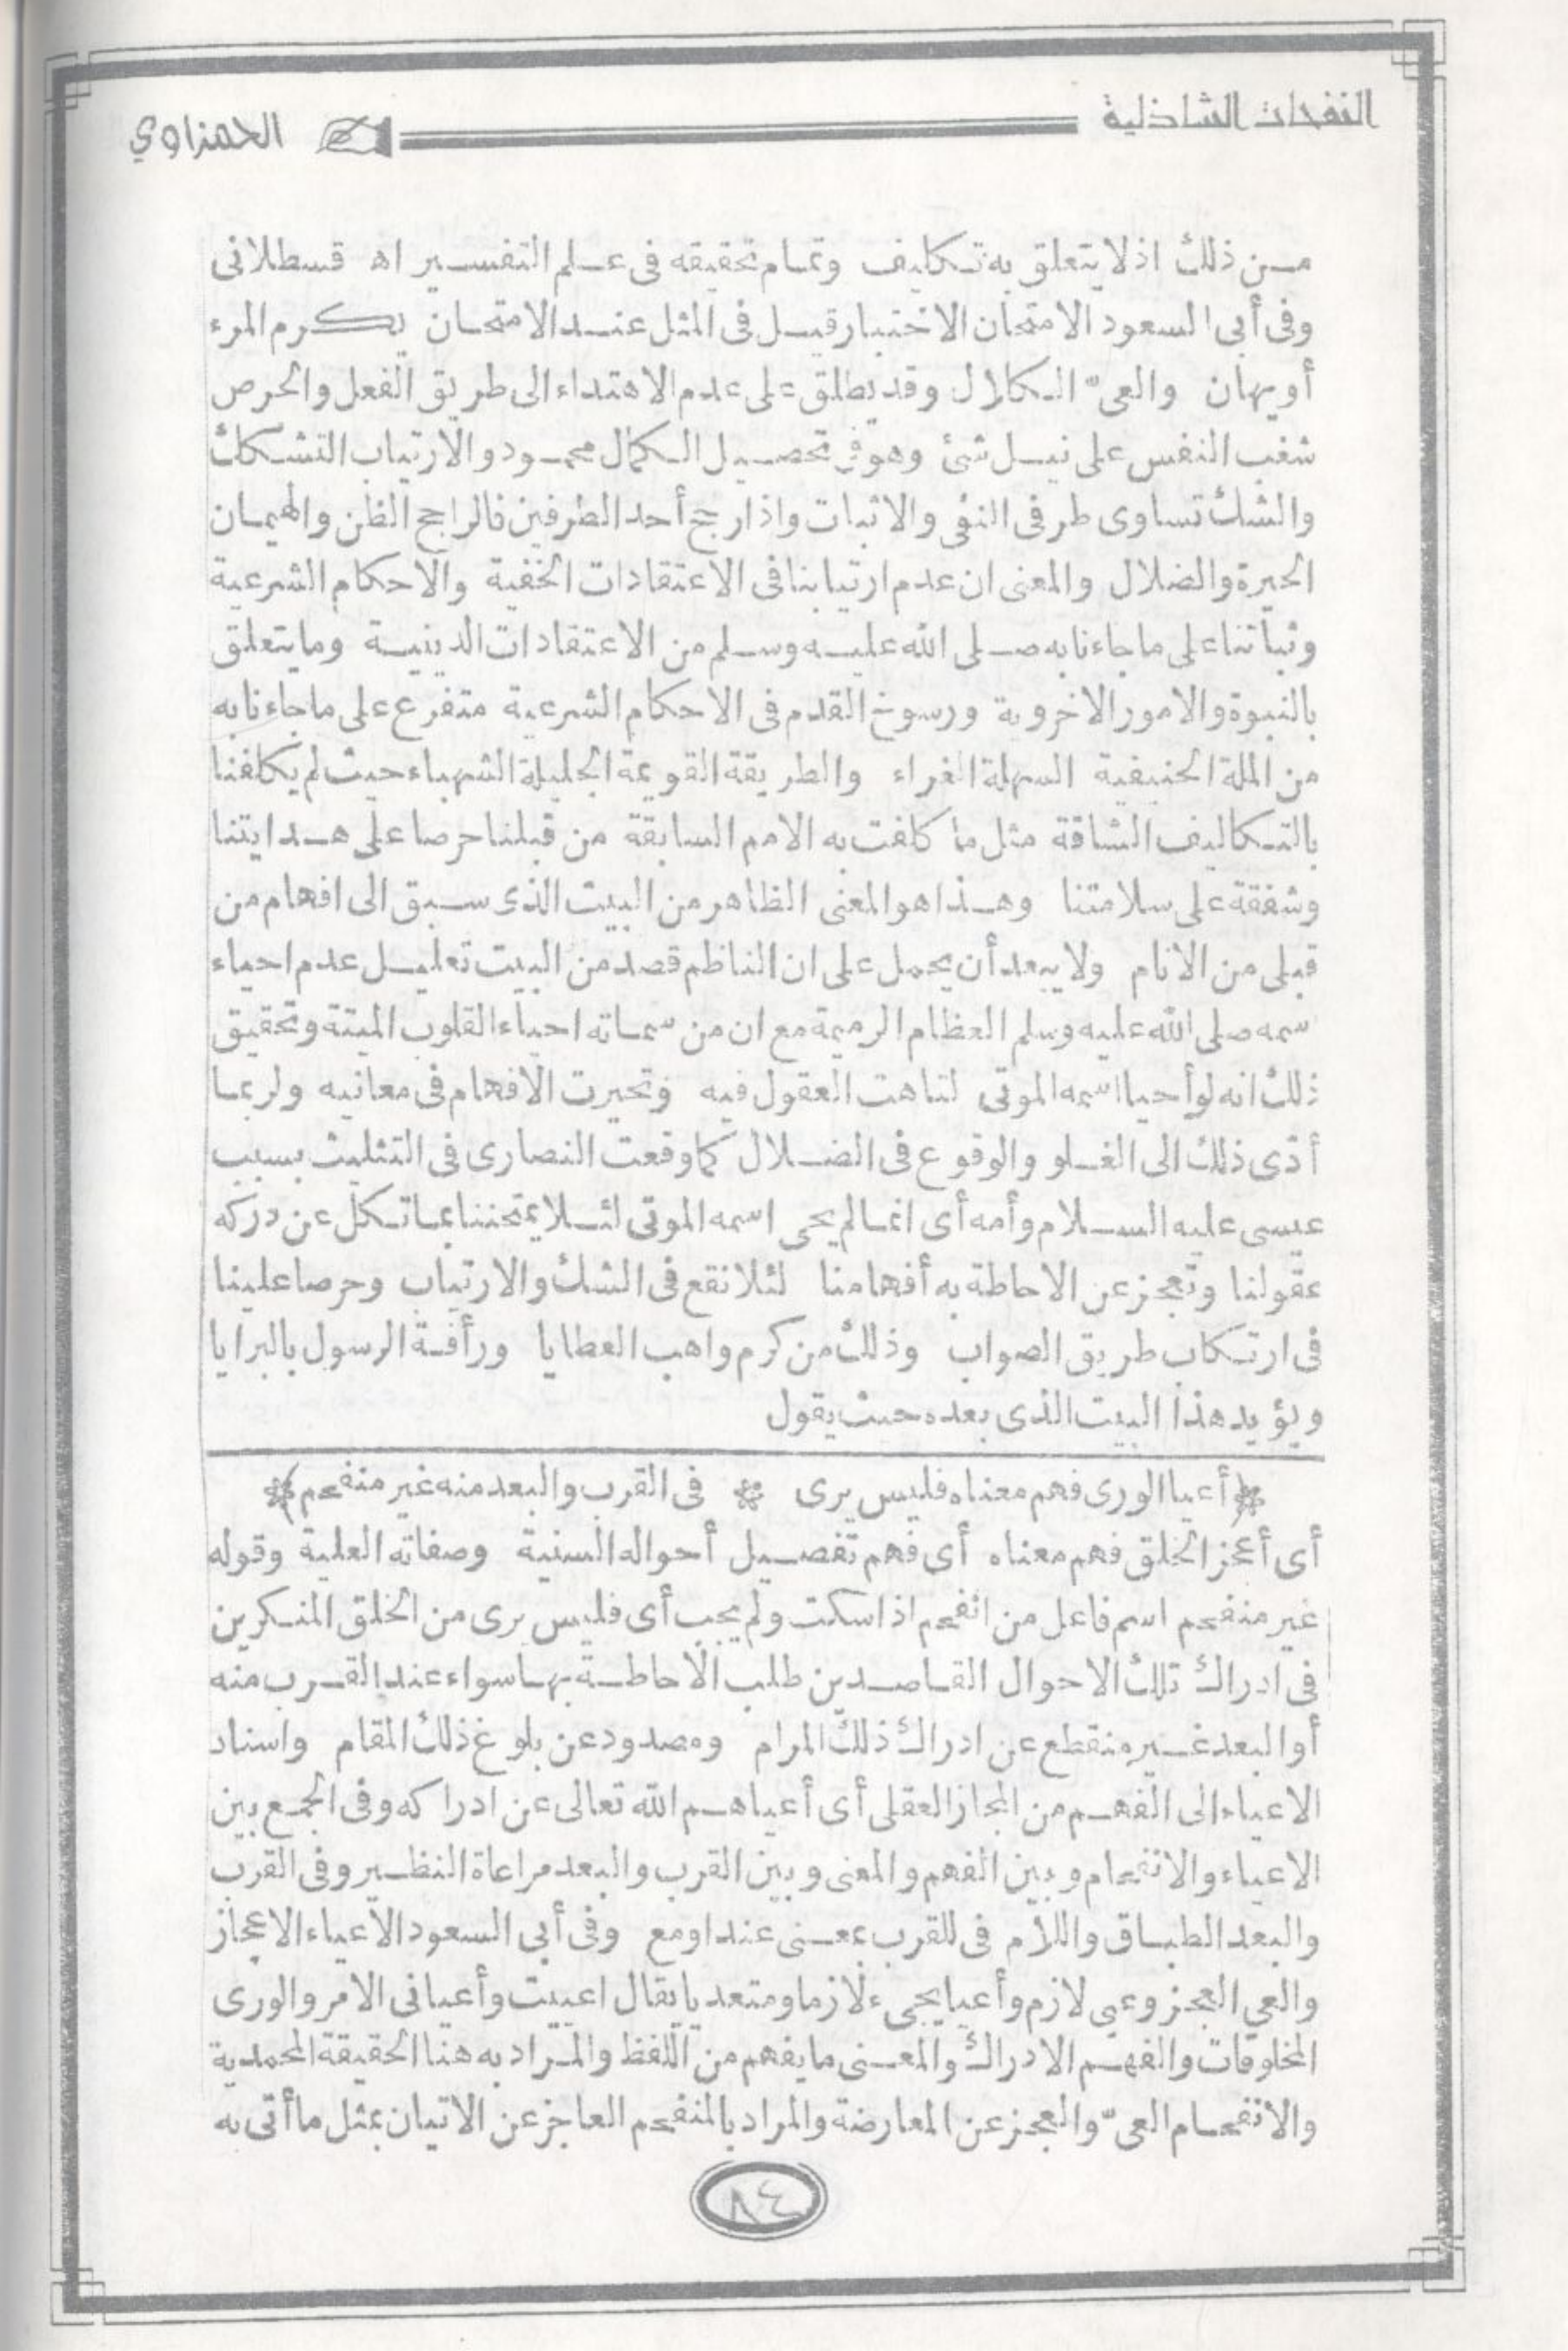 النفحات الشاذلية
الحمزاوي
من ذلك اذلا يتعلق به تكليف وتمام تحقيقه فى علم التفسير اه قسطلانى
وفى أبى السعود الامتحان الاختبار قيل فى المثل عند الامتحان يكرم المرء
أو يهان والعىّ الكلال وقد يطلق على عدم الاهتداء الى طريق الفعل والحرص
شغب النفس على نيل شئ وهو فى تحصيل الكمال محمود والارتياب التشكك
والشك تساوى طرفى النفى والاثبات واذا رجح أحد الطرفين فالراجح الظن والهيمان
الحيرة والضلال والمعنى ان عدم ارتيابنا فى الاعتقادات الخفية والاحكام الشرعية
وثباتنا على ما جاءنا به صلى الله عليه وسلم من الاعتقادات الدينية وما يتعلق
بالنبوة والامور الاخروية ورسوخ القدم فى الاحكام الشرعية متفرع على ما جاءنا به
من الملة الحنيفية السهلة الغراء والطريقة القويمة الجليلة الشهباء حيث لم يكلفنا
بالتكاليف الشاقة مثل ما كلفت به الامم السابقة من قبلنا حرصا على هدايتنا
وشفقة على سلامتنا وهذا هو المعنى الظاهر من البيت الذى سبق الى افهام من
قبلى من الانام ولا يبعد أن يحمل على ان الناظم قصد من البيت تعليل عدم احياء
سمه صلى الله عليه وسلم العظام الرميمة مع ان من سماته احياء القلوب الميتة وتحقيق
ذلك انه لو أحيا اسمه الموتى لتاهت العقول فيه وتحيرت الافهام فى معانيه ولربما
أدّى ذلك الى الغلو والوقوع فى الضلال كما وقعت النصارى فى التثليث بسبب
عيسى عليه السلام وأمه أى انما لم يحى اسمه الموتى لئلا يمتحننا بما تكل عن دركه
عقولنا وتعجز عن الاحاطة به أفهامنا لئلا نقع فى الشك والارتياب وحرصا علينا
فى ارتكاب طريق الصواب وذلك من كرم واهب العطايا ورأفة الرسول بالبرايا
ويؤيد هذا البيت الذى بعده حيث يقول
أعيا الورى فهم معناه فليس يرى * فى القرب والبعد منه غير منفحم
أى أعجز الخلق فهم معناه أى فهم تفصيل أحواله السنية وصفاته العلية وقوله
غير منفحم اسم فاعل من انفحم اذا سكت ولم يجب أى فليس يرى من الخلق المنكرين
فى ادراك تلك الاحوال القاصدين طلب الاحاطة بها سواء عند القرب منه
أو البعد غير منقطع عن ادراك ذلك المرام ومصدود عن بلوغ ذلك المقام واسناد
الاعياء الى الفهم من المجاز العقلى أى أعياهم الله تعالى عن ادراكه وفى الجمع بين
الاعياء والانفحام وبين الفهم والمعنى وبين القرب والبعد مراعاة النظير وفى القرب
والبعد الطباق واللام فى للقرب بمعنى عند او مع وفى أبى السعود الاعياء الاعجاز
والعى العجز وعى لازم وأعيا يجىء لازما ومتعديا يقال اعييت وأعيانى الامر والورى
المخلوقات والفهم الادراك والمعنى ما يفهم من اللفظ والمراد به هنا الحقيقة المحمدية
والانفحام العىّ والعجز عن المعارضة والمراد بالمنفحم العاجز عن الاتيان بمثل ما أتى به
٨٤